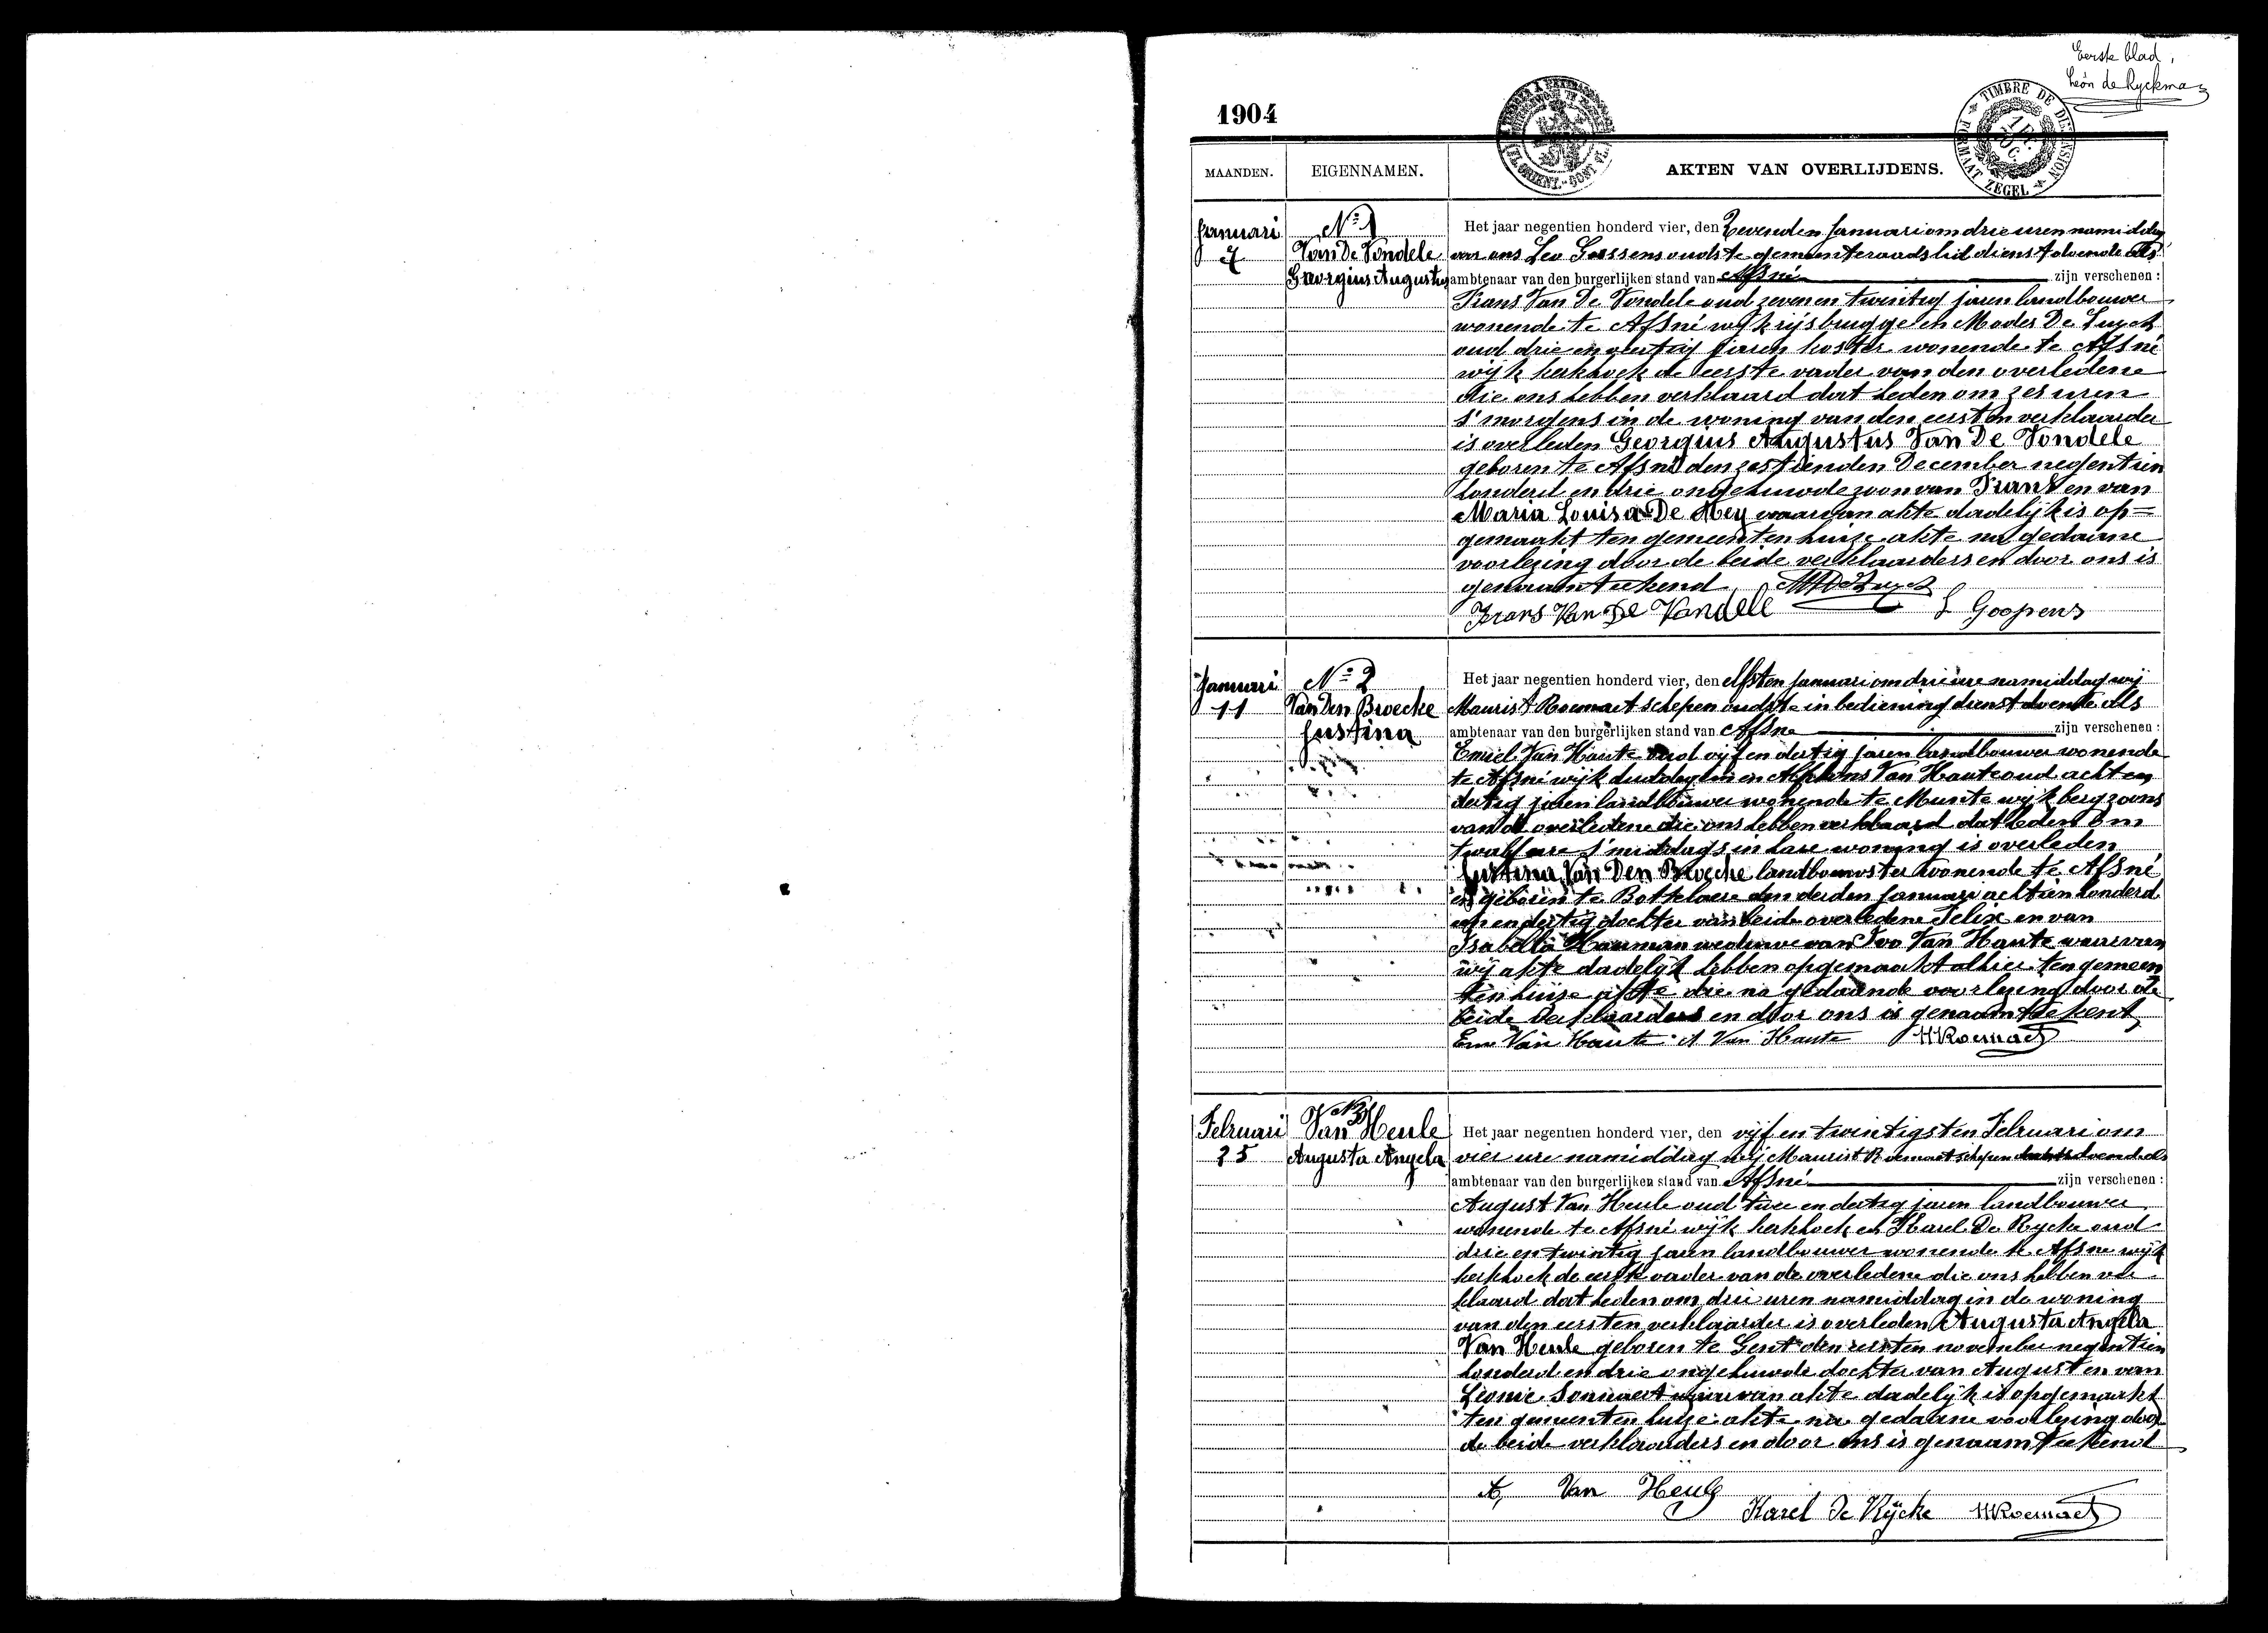 Eerste blad,
Léon de Ryckman
1904
TIMBRE DE DIMENSION
FORMAAT ZEGEL
MAANDEN. EIGENNAMEN. AKTEN VAN OVERLIJDENS.
Januari
7
N° 1
Van De Vondele
Georgius Augustus
Het jaar negentien honderd vier, den Zevenden Januari om drie uren namiddag
voor ons Leo Goossens oudste gemeenteraadslid dienstdoende als
ambtenaar van den burgerlijken stand van Afsné zijn verschenen :
Frans Van De Vondele oud zeven en twintig jaren landbouwer
wonende te Afsné wijk rijsbrugge en Modes De
oud drie en veertig jaren koster wonende te Afsné
wijk kerkhoek de eerste vader van den overledene
die ons hebben verklaard dat heden om zes uren
s'morgens in de woning van den eersten verklaarder
is overleden Georgius Augustus Van De Vondele
geboren te Afsné den zestienden December negentien
honderd en drie ongehuwde zoon van Frans en van
Maria Louisa De Mey waarvan akte dadelijk is op=
gemaakt ten gemeentenhuize akte na gedaane
voorlezing door de beide verklaarders en door ons is
genaamteekend
Frans Van De Vandele L Goossens
Januari
11
N° 2
Van Den Broecke
Justina
Het jaar negentien honderd vier, den elfsten Januari om drie ure namiddag wij
Maurist Roemaet schepen oudste in bediening dienstdoende als
ambtenaar van den burgerlijken stand van Afsne zijn verschenen :
Emiel Van Haute oud vijf en dertig jaren landbouwer wonende
te Afsné wijk en Alphons Van Haute oud acht en
dertig jaren landbouwer wonende te Munte wijk berg zoons
van de overledene die ons hebben verklaard dat heden om
twaalf ure s'middags in hare woning is overleden
Justina Van Den Broecke landbouwster wonende te Afsné
en geboren te Botelaere den derden Januari achttien honderd
een en dertig dochter van beide overledene Felix en van
Isabella weduwe van Ivo Van Haute waarvan
wij akte dadelijk hebben opgemaakt alhier ten gemeen
tenhuize akte die na gedaande voorlezing door de
beide verklaarders en door ons is genaamteekent
Em Van Haute A Van Haute MRoemaet
Februari
25
N° 3
Van Heule
Augusta Angela
Het jaar negentien honderd vier, den vijf en twintigsten Februari om
vier ure namiddag wij Maurist Roemaet schepen dienstdoende als
ambtenaar van den burgerlijken stand van Afsné zijn verschenen :
August Van Heule oud twee en dertig jaren landbouwer
wonende te Afsné wijk kerkhoek en Karel De Rycke oud
drie en twintig jaren landbouwer wonende te Afsne wijk
kerkhoek de eerste vader van de overledene die ons hebben ver
klaard dat heden om drie uren namiddag in de woning
van den eersten verklaarder is overleden Augusta Angela
Van Heule geboren te Gent den eersten november negentien
honderd en drie ongehuwde dochter van August en van
Léonie Sonnaert waarvan akte dadelijk is opgemaakt
ten gemeenten huize akte na gedaane voorlezing door
de beide verklaarders en door ons is genaamteekend
A, Van Heule
Karel De Rÿcke MRoemaet